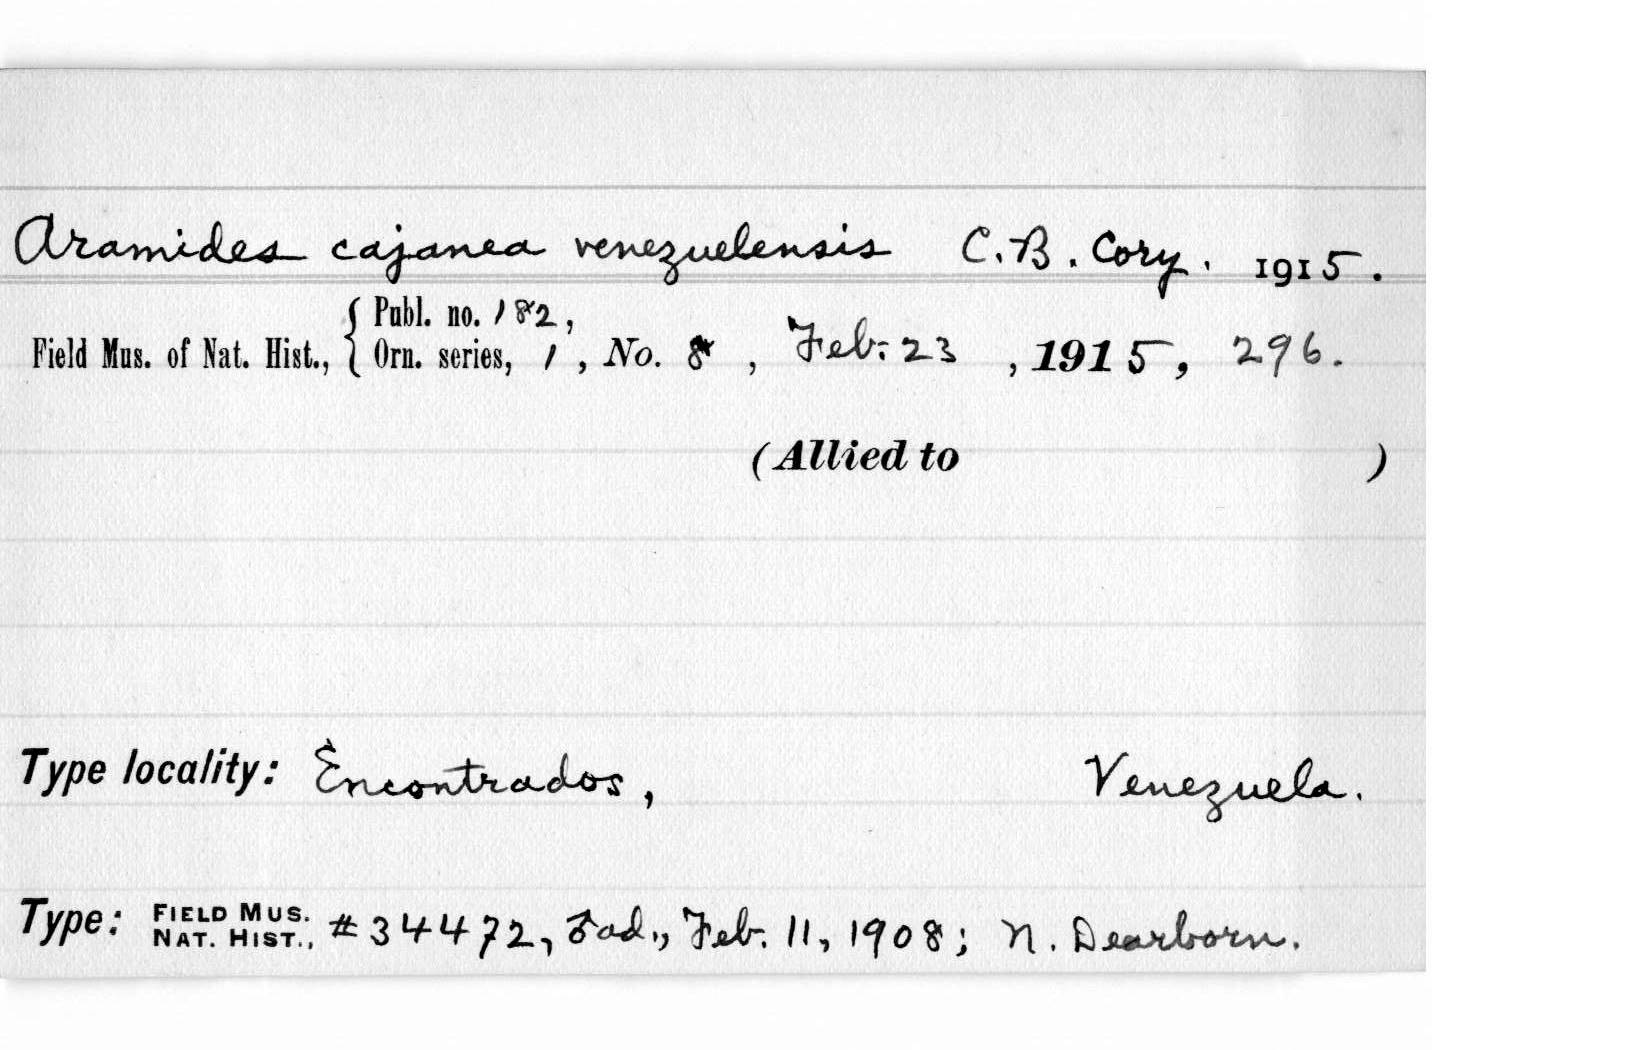 Aramides cajanea venezuelensis C. B. Cory. 1915.
Field Mus. of Nat. Hist., { Publ. no. 182,
Orn. series, 1, No. 8, Feb. 23, 1915, 296.
(Allied to )
Type locality: Encontrados, Venezuela.
Type: FIELD MUS. NAT. HIST., #34472, ♂ad., Feb. 11, 1908; N. Dearborn.